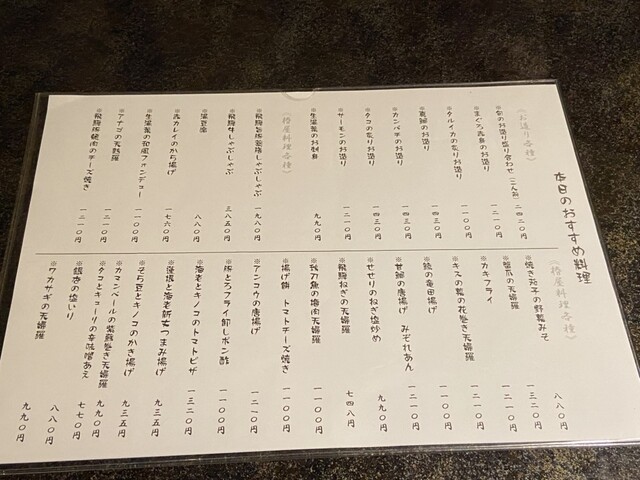 本日のおすすめ料理
《お造り各種》
※旬のお造り盛り合わせ(二人前) 二四二〇円
※まぐろ赤身のお造り 一二一〇円
※タルイカの炙りお造り 一一〇〇円
※真鯛のお造り 一四三〇円
※カンパチのお造り 一四三〇円
※タコの炙りお造り 一四三〇円
※サーモンのお造り 一二一〇円
※生湯葉のお刺身 九九〇円
※飛騨旨豚薬膳しゃぶしゃぶ 一九八〇円
※飛騨牛しゃぶしゃぶ 三八五〇円
※湯豆腐 八八〇円
※赤カレイのから揚げ 一七六〇円
※生湯葉の和風フォンデュー 一一〇〇円
※アナゴの天麩羅 一二一〇円
※飛騨豚鶏肉のチーズ焼き 一二一〇円
※焼き茄子の野菜みそ 八八〇円
※蟹爪の天婦羅 一三二〇円
※カキフライ 一二一〇円
※キスの菊の花巻き天婦羅 一二一〇円
※鯰の竜田揚げ 一一〇〇円
※甘鯛の唐揚げ みぞれあん 一二一〇円
※せせりのねぎ塩炒め 九九〇円
※飛騨ねぎの天婦羅 七四八円
※秋刀魚の梅肉天婦羅 一一〇〇円
※揚げ餅 トマトチーズ焼き 一一〇〇円
※アンコウの唐揚げ 一二一〇円
※豚とろフライ卸しポン酢 一一〇〇円
※海老とキノコのトマトピザ 一三二〇円
※蓮根と海老新丈つまみ揚げ 九三五円
※そら豆とキノコのかき揚げ 九三五円
※カマンベールの紫蘇巻き天婦羅 九九〇円
※タコとキューリの辛味噌あえ 七七〇円
※銀杏の塩いり 八八〇円
※ワカサギの天婦羅 九九〇円